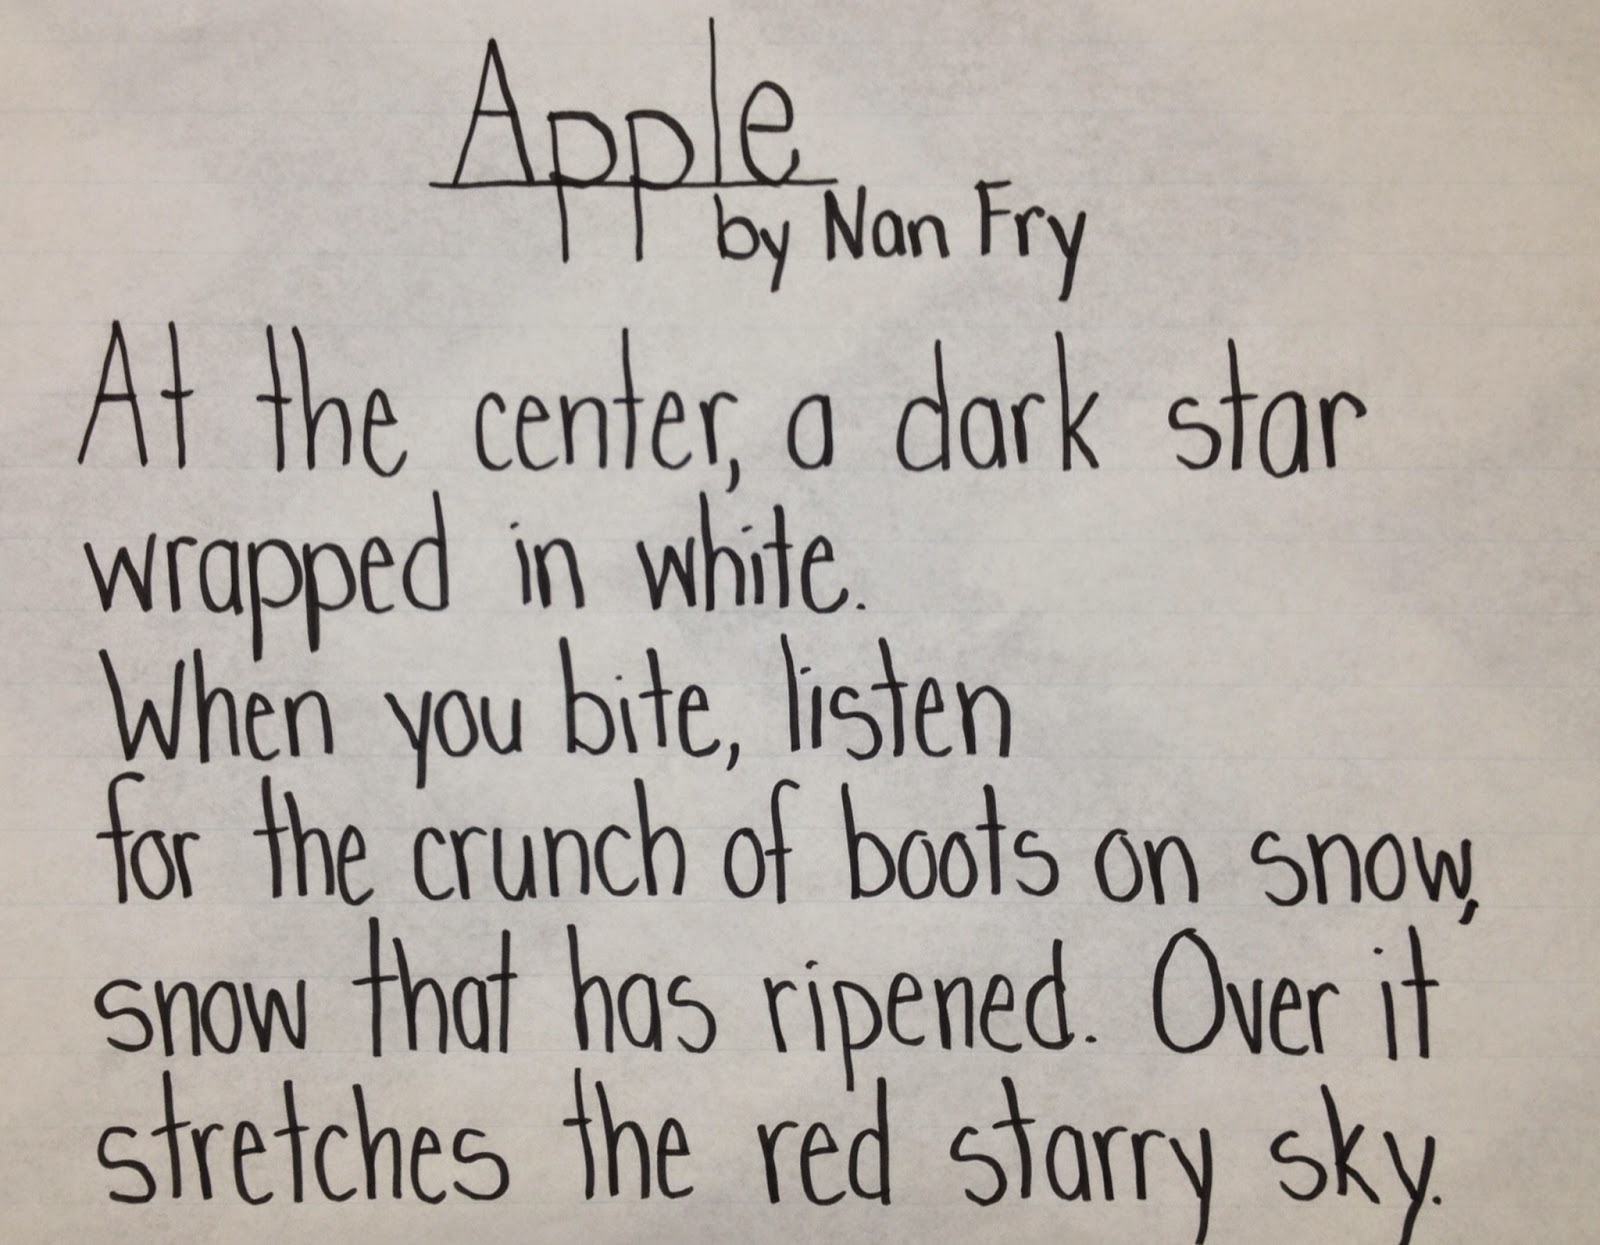 Apple
by Nan Fry
At the center, a dark star
wrapped in white.
When you bite, listen
for the crunch of boots on snow,
snow that has ripened. Over it
stretches the red starry sky.